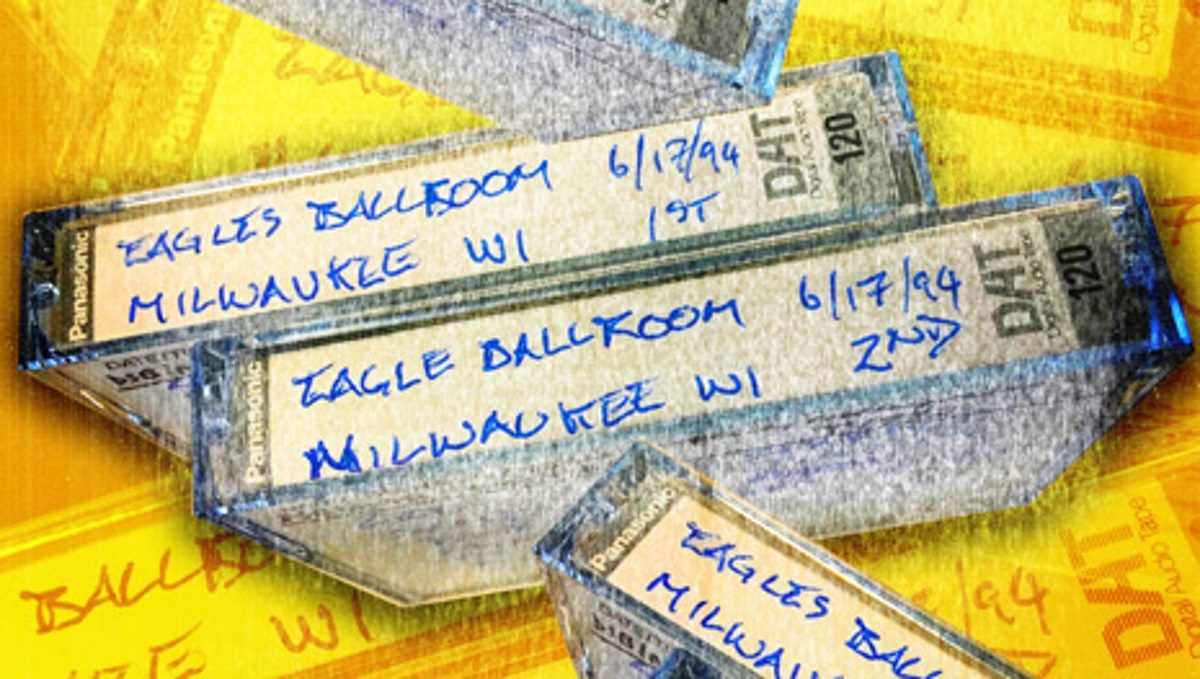 Panasonic
EAGLES BALLROOM 6/17/94
MILWAUKEE WI 1ST
DAT
Digital Audio Tape
120
Panasonic
EAGLE BALLROOM 6/17/94
MILWAUKEE WI 2ND
DAT
Digital Audio Tape
120
Panasonic
EAGLES BALL
MILWAU
BALLR
WI
/94
DAT
Digital Audio Tape
Panasonic